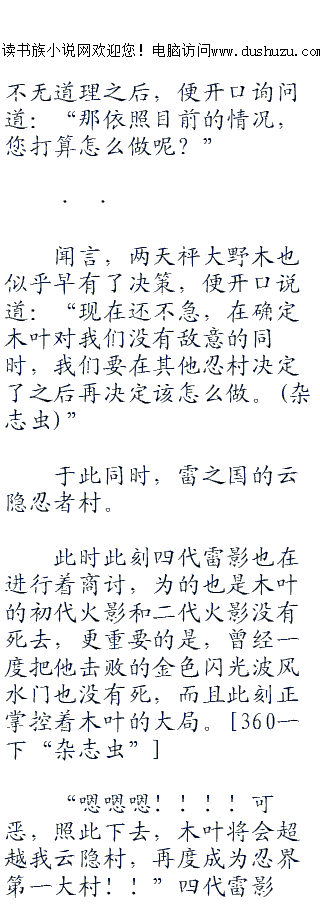 读书族小说网欢迎您！电脑访问www.dushuzu.com
不无道理之后，便开口询问
道：“那依照目前的情况，
您打算怎么做呢？”
· ·
闻言，两天秤大野木也
似乎早有了决策，便开口说
道：“现在还不急，在确定
木叶对我们没有敌意的同
时，我们要在其他忍村决定
了之后再决定该怎么做。(杂
志虫)”
于此同时，雷之国的云
隐忍者村。
此时此刻四代雷影也在
进行着商讨，为的也是木叶
的初代火影和二代火影没有
死去，更重要的是，曾经一
度把他击败的金色闪光波风
水门也没有死，而且此刻正
掌控着木叶的大局。[360一
下“杂志虫”]
“嗯嗯嗯！！！！可
恶，照此下去，木叶将会超
越我云隐村，再度成为忍界
第一大村！！”四代雷影